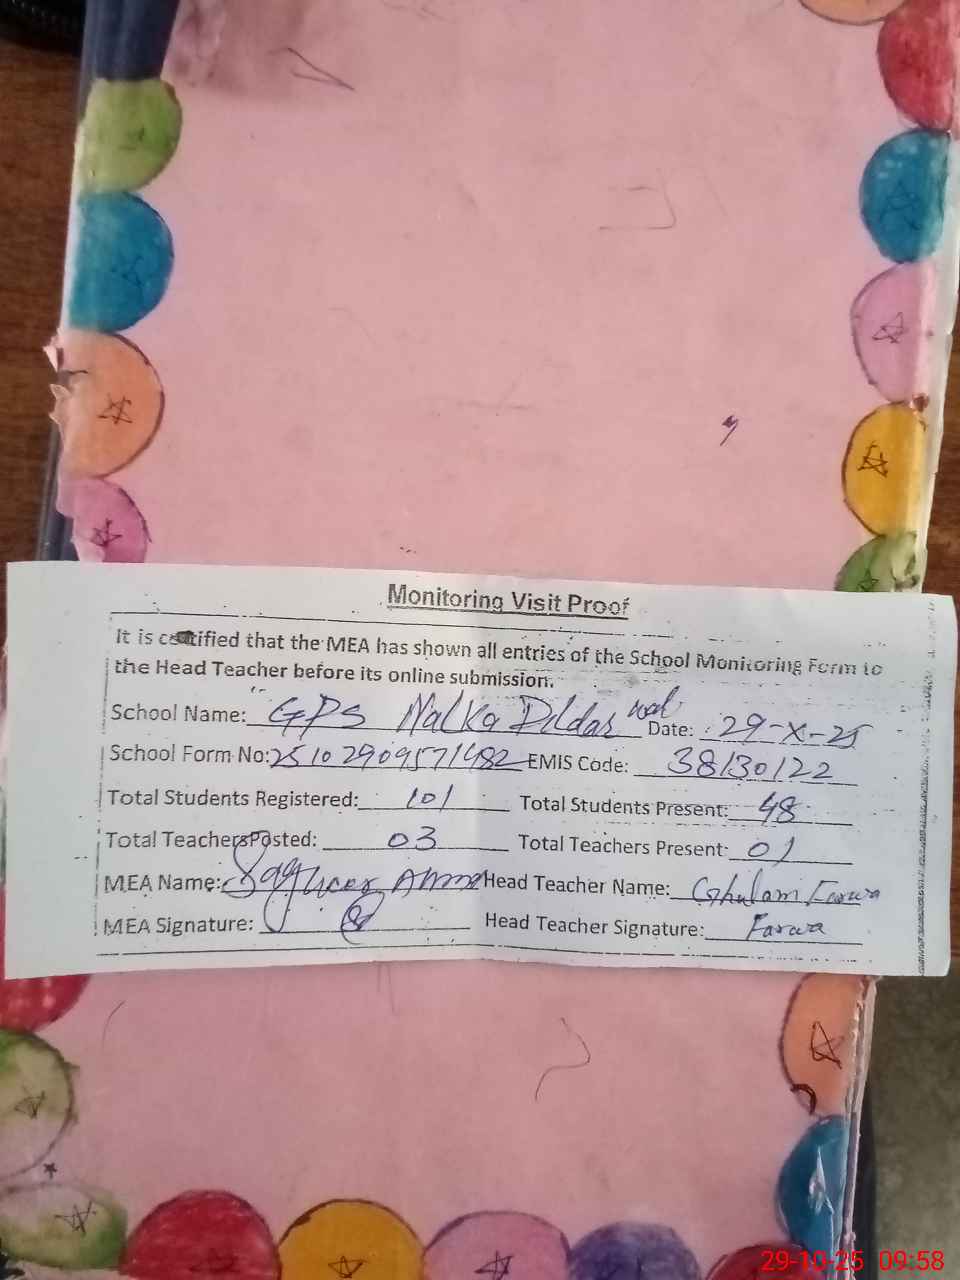 Monitoring Visit Proof
It is certified that the MEA has shown all entries of the School Monitoring Form to
the Head Teacher before its online submission.
School Name: GPS Nalka Dildar wal Date: 29-X-25
School Form No: 25102909571482 EMIS Code: 38130122
Total Students Registered: 101 Total Students Present: 48
Total Teachers Posted: 03 Total Teachers Present: 01
MEA Name: Head Teacher Name: Ghulam Farwa
MEA Signature: Head Teacher Signature: Farwa
29-10-25 09:58